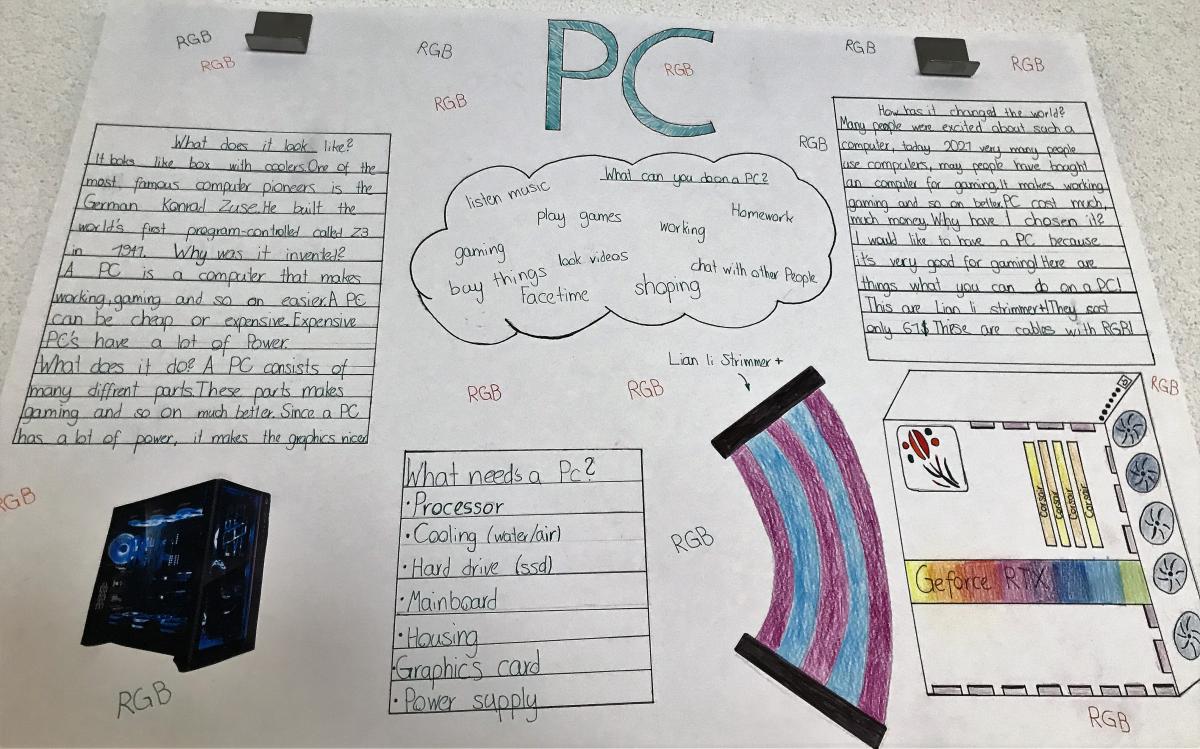 PC
RGB
RGB
RGB
RGB
RGB
RGB
RGB
RGB
What does it look like?
It looks like box with coolers.One of the
most famous computer pioneers is the
German Konrad Zuse.He built the
world's first program-controlled called Z3
in 1941. Why was it invented?
A PC is a computer that makes
working,gaming and so on easier.A PC
can be cheap or expensive.Expensive
PC's have a lot of Power.
What does it do? A PC consists of
many diffrent parts.These parts makes
gaming and so on much better. Since a PC
has a lot of power, it makes the graphics nicer
What can you do on a PC?
listen music
play games
Homework
working
gaming
look videos
chat with other People
buy things
Facetime
shoping
How has it changed the world?
Many people were excited about such a
computer, today 2021 very many people
use computers, may people have bought
an computer for gaming.It makes working,
gaming and so on better.PC cost much,
much money.Why have I chosen it?
I would like to have a PC because
it's very good for gaming!Here are
things what you can do on a PC!
This are Lian li strimmer+!They cost
only 61$ These are cables with RGB!
RGB
RGB
Lian li Strimmer +
RGB
What needs a Pc?
• Processor
• Cooling (water/air)
• Hard drive (ssd)
• Mainboard
• Housing
• Graphic's card
• Power supply
RGB
RGB
RGB
Corsair
Corsair
Corsair
Corsair
Geforce RTX
RGB